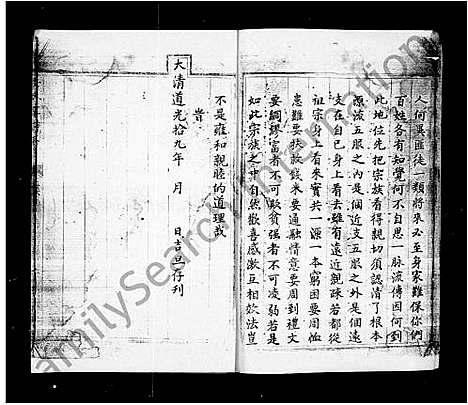 人何異匪徒一類將來必至身家難保你們
百姓各有知覺何不自思一脉流傳因何到
此地位先把宗族看得親切須認清了根本
源流五服之內是個近支五服之外是個遠
支在自己身上看去雖有遠近親疎若都從
祖宗身上看來實共一源一本窮困要周恤
患難要扶救錢米要通融情意要周到禮文
要綢繆富者不可欺貧强者不可凌弱若是
如此宗族之中自然歡喜感激互相效法豈
不是雍和親睦的道理哉
大清道光拾九年 月 日吉旦存列
FamilySearch International